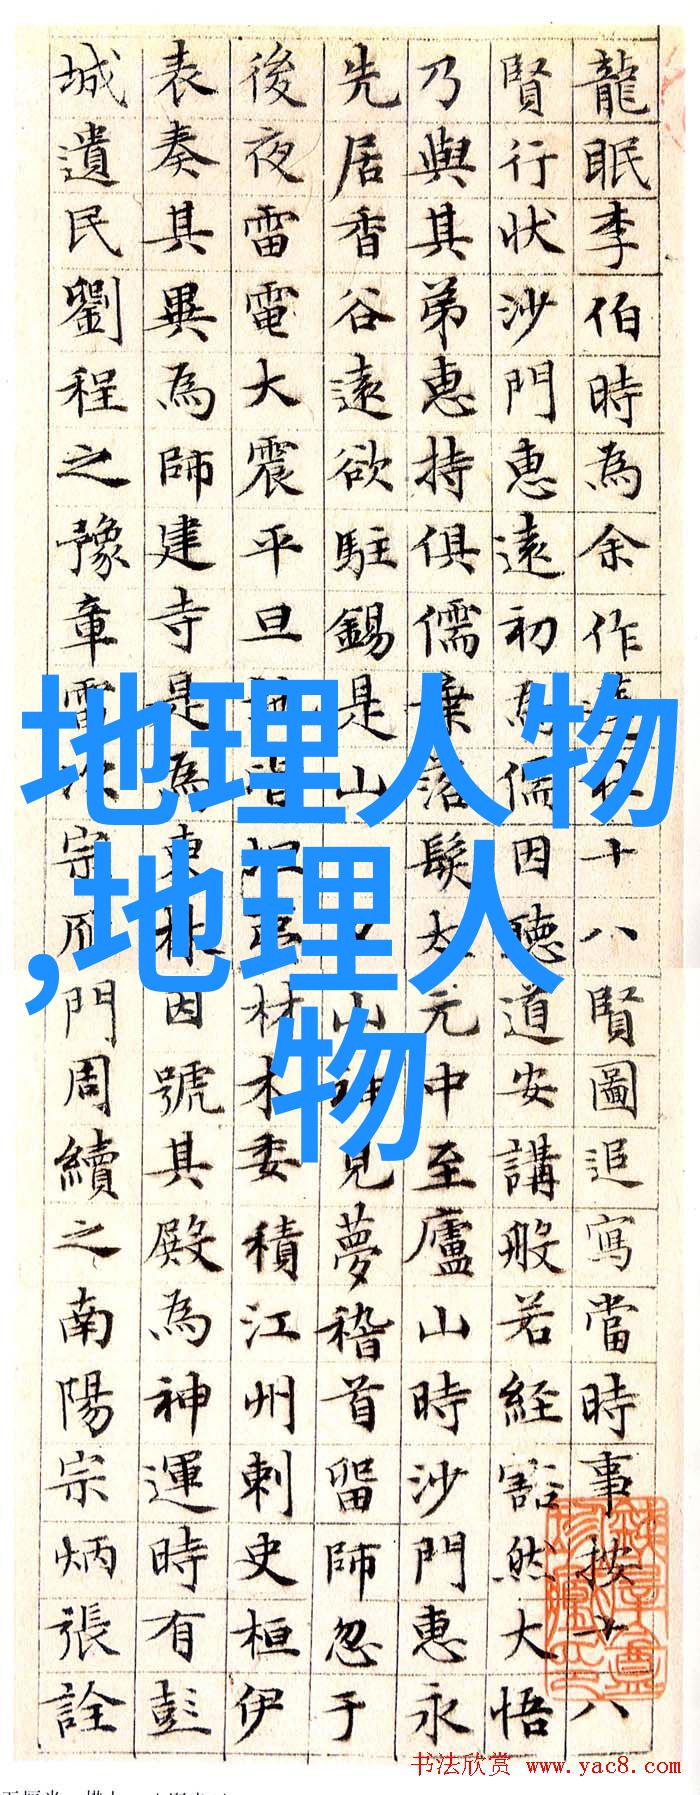 龍眠李伯時為余作十八賢圖追寫當時事按十八
賢行狀沙門惠遠初為儒因聽道安講般若経豁然大悟
乃與其弟惠持俱儒棄落髮太元中至廬山時沙門惠永
先居香谷遠欲駐錫是山山見夢稽首留師忽于
後夜雷電大震平旦材木委積江州刺史桓伊
表奏其異為師建寺是為東林因號其殿為神運時有彭
城遺民劉程之豫章雷次宗雁門周續之南陽宗炳張詮
地理人物
,地理人
物
书法欣赏 www.yac8.com